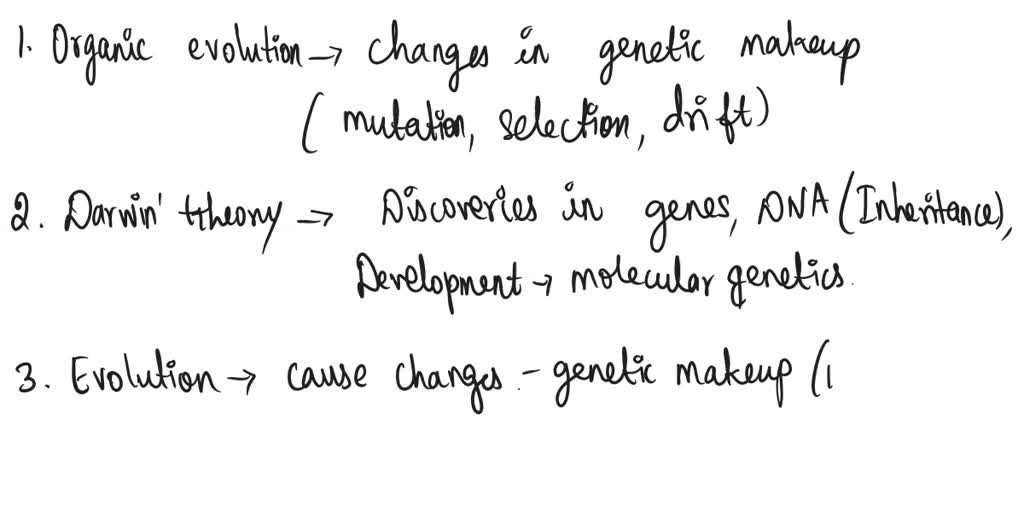 1. Organic evolution → changes in genetic makeup
( mutation, selection, drift)
2. Darwin' ttheory → Discoveries in genes, DNA (Inheritance),
Development → molecular genetics.
3. Evolution → cause changes - genetic makeup (